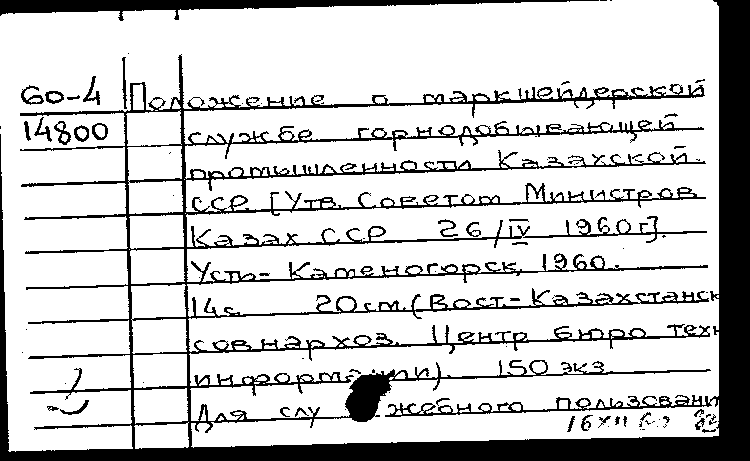 60-4 Положение о маркшейдерской
14800 службе горнодобывающей
промышленности Казахской
ССР. [Утв. Советом Министров
Казах ССР 26/IV 1960г.].
Усть-Каменогорск, 1960.
14с. 20см. (Вост.-Казахстанск
совнархоз. Центр бюро техн
информации). 150 экз
Для служебного пользовани